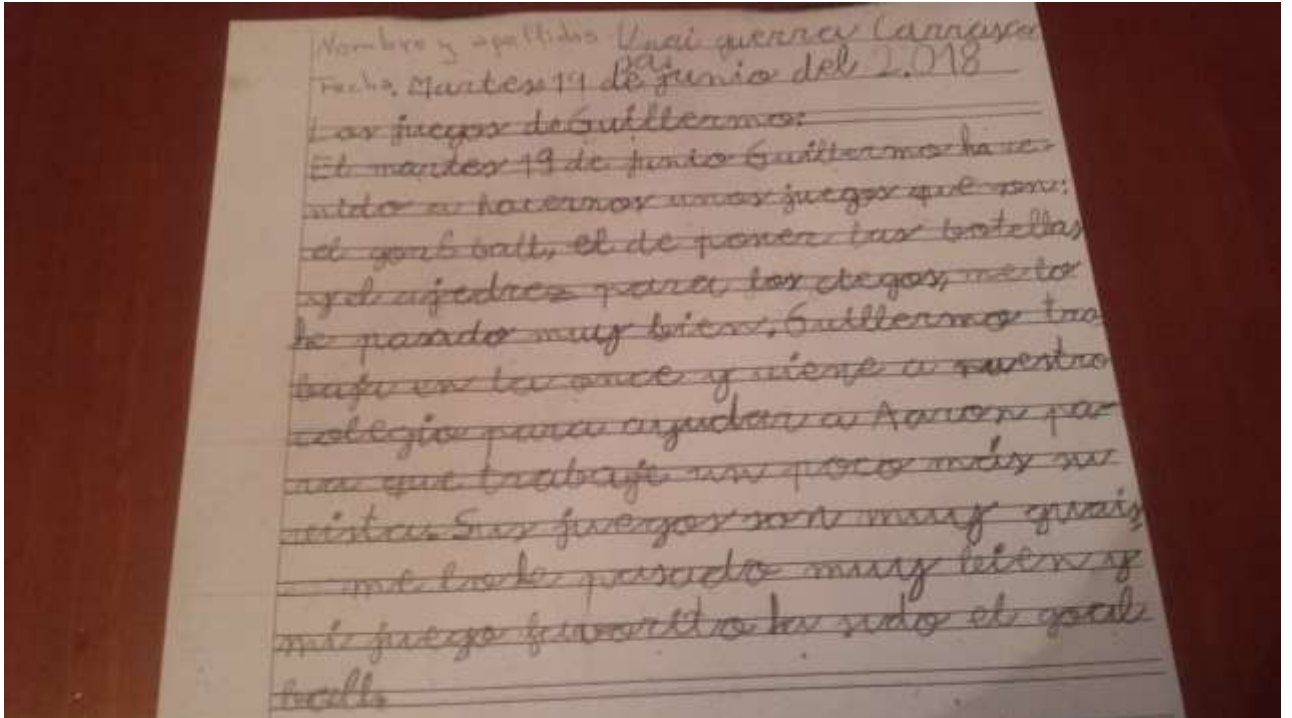 Nombre y apellidos Unai guerra Carrasco
sai
Fecha. Martes 19 de junio del 2.018
Los juegos de Guillermo:
El martes 19 de junio Guillermo ha ve-
nido a hacernos unos juegos que son:
el goal ball, el de poner las botellas
y el ajedrez para los ciegos, me lo
he pasado muy bien. Guillermo tra
baja en la once y viene a nuestro
colegio para ayudar a Aaron pa-
ra que trabaje un poco más su
vista. Sus juegos son muy guais,
me lo he pasado muy bien y
mi juego favorito ha sido el goal
ball.